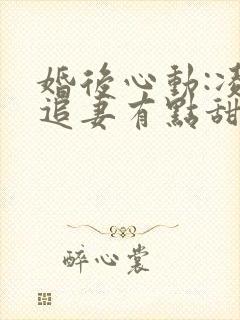 婚後心動:凌
追妻有點甜
醉心裳